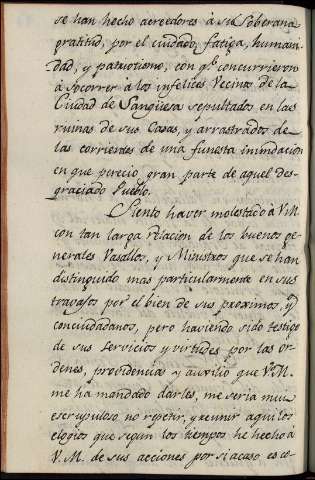 se han hecho acreedores à su Soberana
gratitud, por el cuidado, fatiga, humani-
dad, y patriotismo, con qᵉ concurrieron
à socorrer à los infelices Vecinos de la
Ciudad de Sangüesa sepultados en las
ruinas de sus Casas, y arrastrados de
las corrientes de una funesta inundacion
en que pereciò gran parte de aquel des-
graciado Pueblo.
Siento haver molestado à V.M.
con tan larga relacion de los buenos ge-
nerales Vasallos, y Ministros que se han
distinguido mas particularmente en sus
travajos por el bien de sus proximos, y
conciudadanos, pero haviendo sido testigo
de sus servicios y virtudes por las or-
denes, providencias y auxilio que V.M.
me ha mandado darles, me seria muy
escrupuloso no repetir, y reunir aqui los
elogios que segun los tiempos he hecho à
V.M. de sus acciones por si acaso es co-